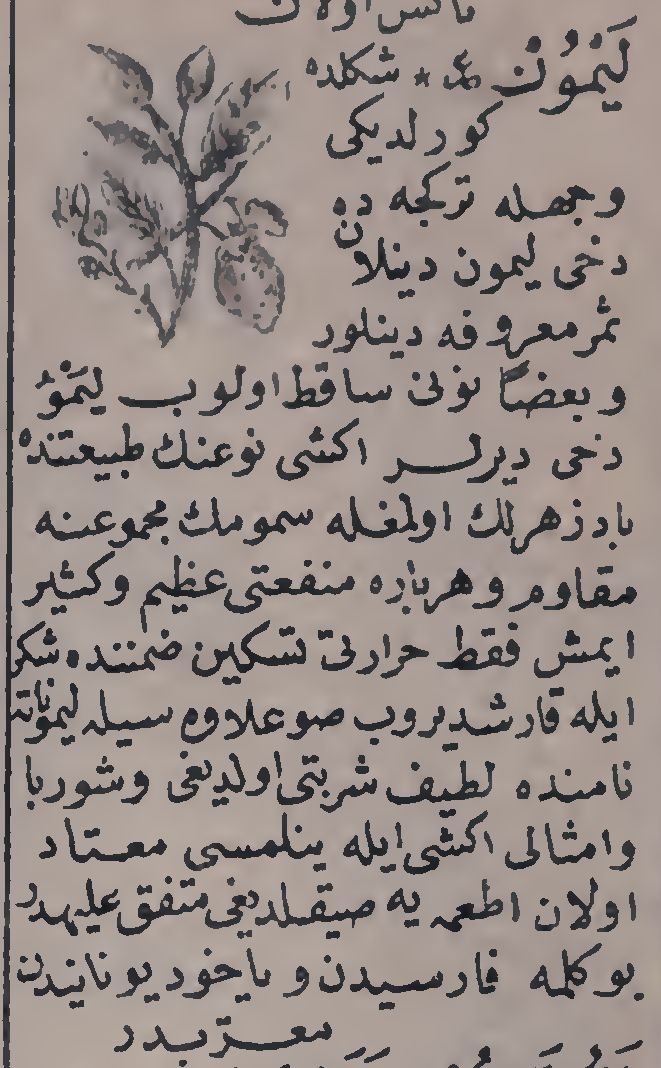 لَيْمُونْ ع * شكلده
كورلديكى
وجهله تركجه ده
دخى ليمون دينلان
ثمر معروفه دينلور
وبعضًا نونى ساقط اولوب لَيْمُو
دخى ديرلر اكشى نوعنك طبيعتنده
بادزهرلك اولمغله سمومك مجموعنه
مقاوم وهر باره منفعتى عظيم وكثير
ايمش فقط حرارتى تسكين ضمننده شكر
ايله قارشديروب صو علاوه سيله ليموناته
نامنده لطيف شربتى اولديغى وشوربا
وامثالى اكشى ايله ينلمسى معتاد
اولان اطعمه يه صيقلديغى متفق عليهدر
بو كلمه فارسيدن وياخود يونانيدن
معربدر